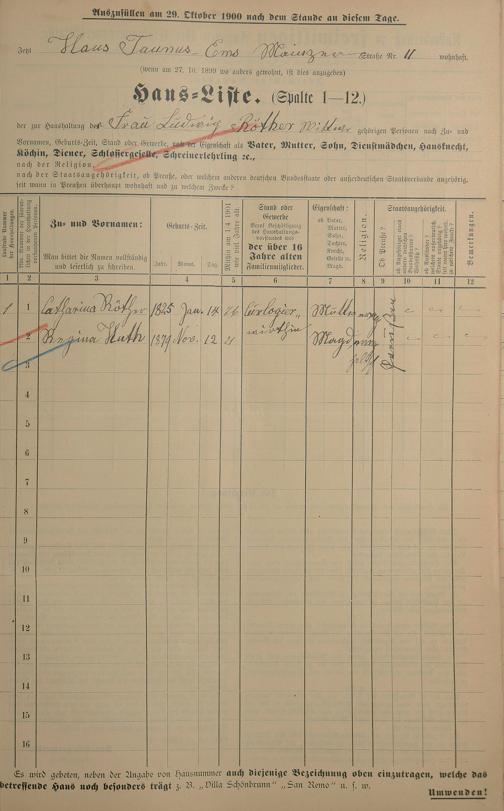 Auszufüllen am 29. Oktober 1900 nach dem Stande an diesem Tage.
Jetzt Haus Taunus - Ems Mainzer Straße Nr. 11 wohnhaft.
(wenn am 27. 10. 1899 wo anders gewohnt, ist dies anzugeben)
Haus-Liste. (Spalte 1—12.)
der zur Haushaltung des Frau Ludwig Röther Mutter gehörigen Personen nach Zu- und
Vornamen, Geburts-Zeit, Stand oder Gewerbe, nach der Eigenschaft als Vater, Mutter, Sohn, Dienstmädchen, Hausknecht,
Köchin, Diener, Schlossergeselle, Schreinerlehrling ꝛc.,
nach der Religion,
nach der Staatsangehörigkeit, ob Preuße, oder welchem anderen deutschen Bundesstaate oder außerdeutschen Staatsverbande angehörig,
seit wann in Preußen überhaupt wohnhaft und zu welchem Zwecke?
Zu- und Vornamen:
Man bittet die Namen vollständig
und leserlich zu schreiben.
Geburts-Zeit.
Jahr. Monat. Tag.
Stand oder
Gewerbe
der über 16
Jahre alten
Familienmitglieder.
Eigenschaft:
ob Vater,
Mutter,
Sohn,
Tochter,
Knecht,
Geselle u.
Magd.
Religion.
Staatsangehörigkeit.
Ob Preuße?
Bemerkungen.
1 2 3 4 5 6 7 8 9 10 11 12
1 1 Catharina Röther 1825 Jan. 14 Curlogier- Mutter evg
wirthin
2 Regina Huth 1879 Nov. 12 21 Magd
3
4
5
6
7
8
9
10
11
12
13
14
15
16
Es wird gebeten, neben der Angabe von Hausnummer auch diejenige Bezeichnung oben einzutragen, welche das
betreffende Haus noch besonders trägt z. B. „Villa Schönbrunn" „San Remo" u. s. w.
Umwenden!